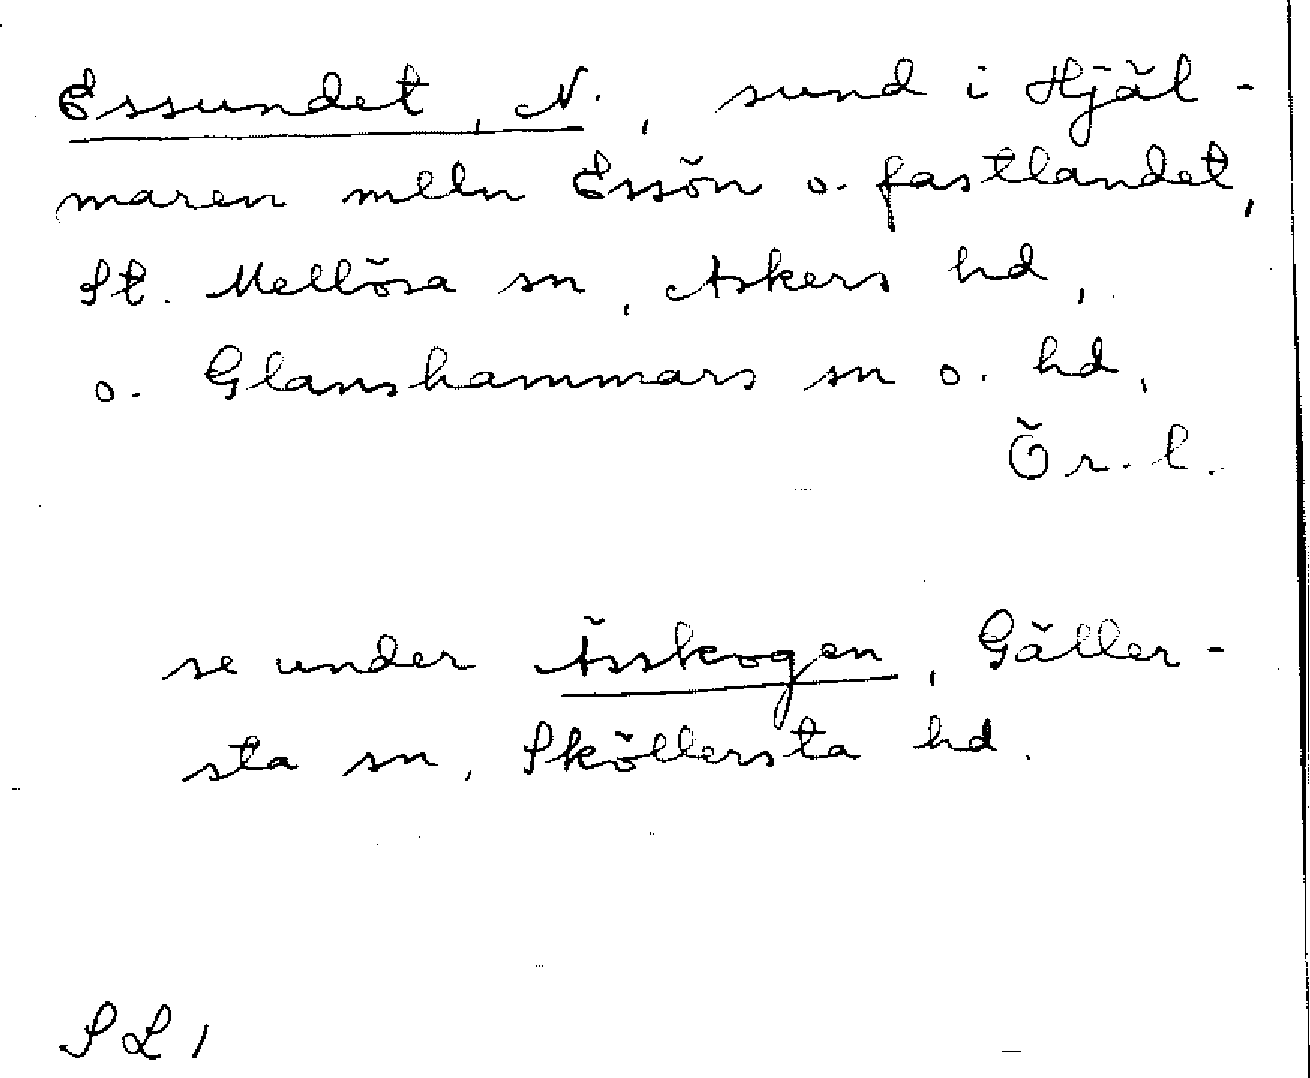 Essundet, N., sund i Hjäl-
maren mlln Essön o. fastlandet,
St. Mellösa sn, Askers hd,
o. Glanshammars sn o. hd,
Ör. l.
se under Ässkogen, Gäller-
sta sn, Sköllersta hd.
SL 1